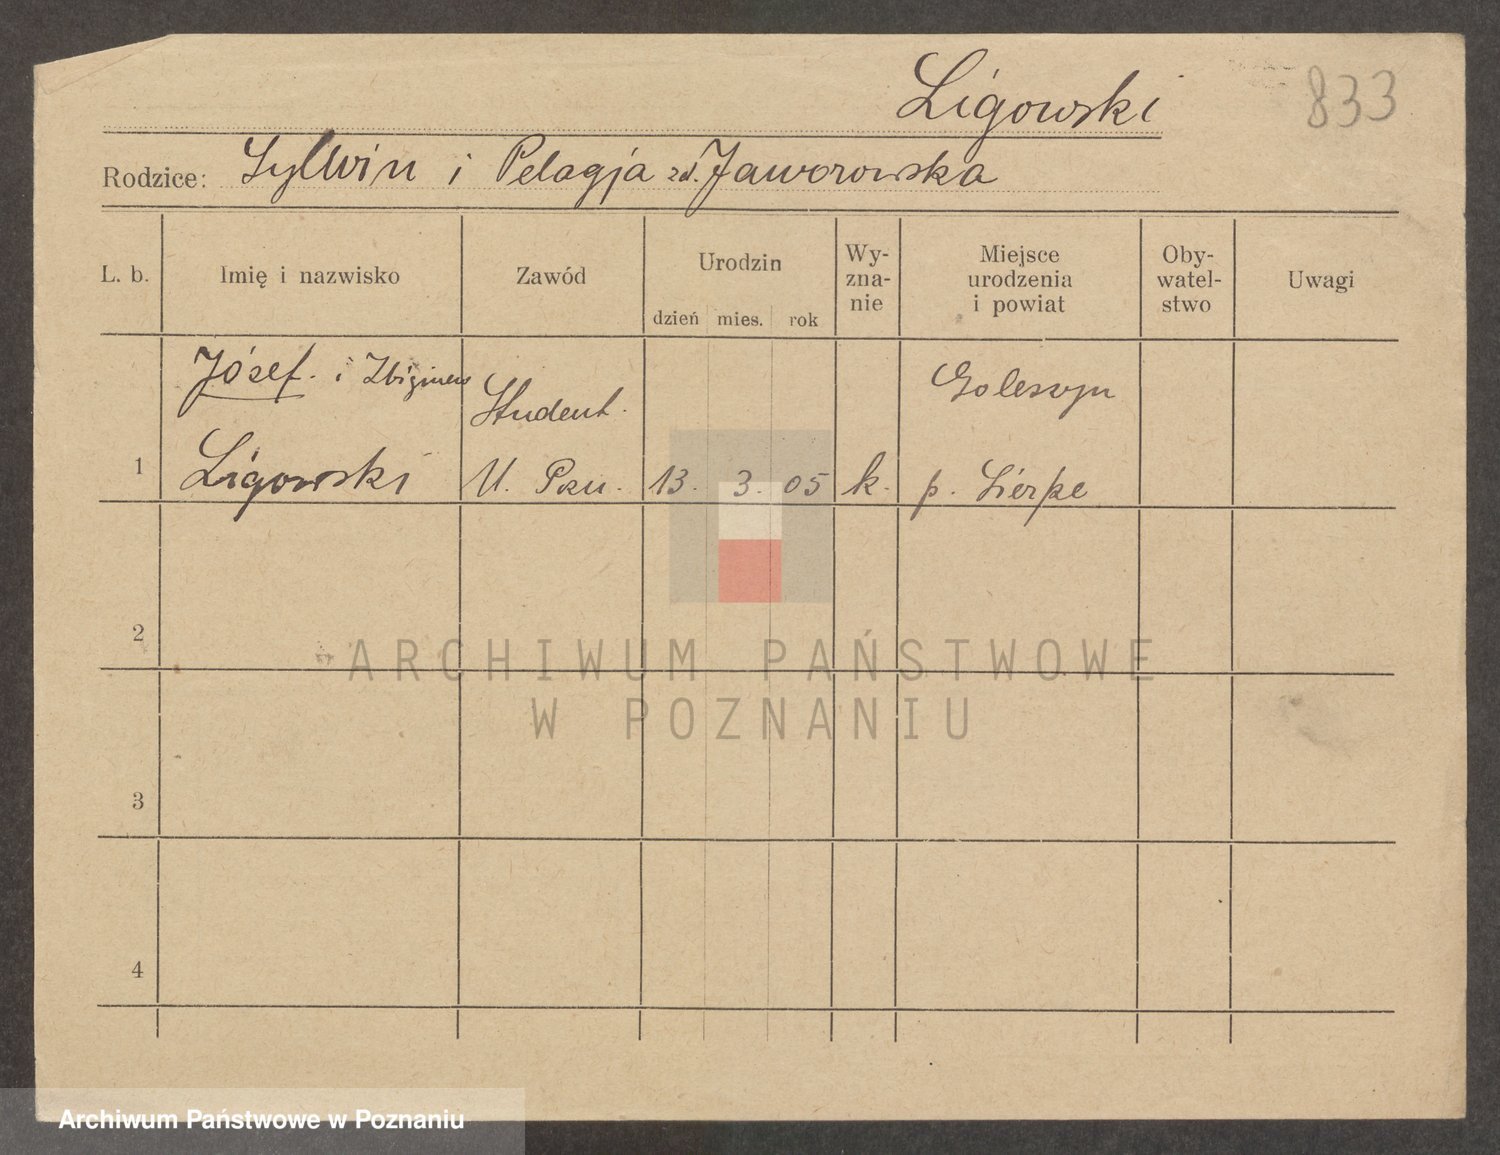 Ligowski
833
Rodzice: Sylwin i Pelagja zd. Jaworowska
L. b. Imię i nazwisko Zawód Urodzin dzień mies. rok Wy-zna-nie Miejsce urodzenia i powiat Oby-watel-stwo Uwagi
Józef. i Zbigniew Student. Goleszyn
1 Ligowski U. Pozn. 13. 3. 05 k. p. Sierpc
2
ARCHIWUM PAŃSTWOWE
W POZNANIU
3
4
Archiwum Państwowe w Poznaniu